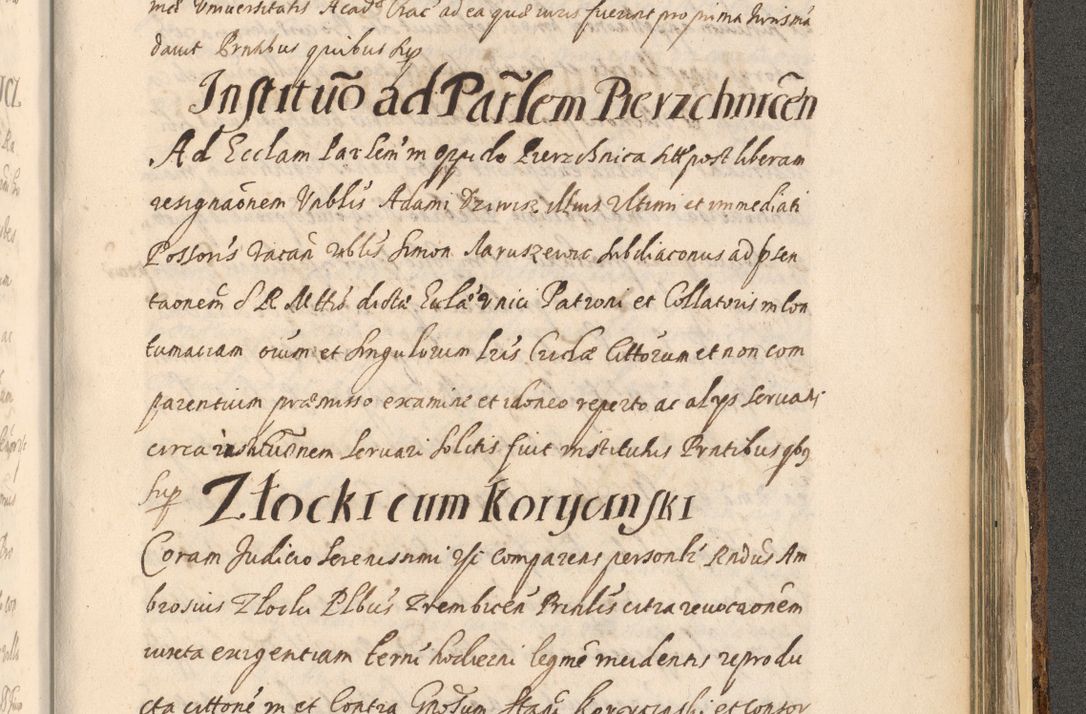 mee Universitatis Acad Crac ad ea quæ iuris fuerint pro prima Juris ma
davit Prntibus quibus sup
Institutio ad Parlem Pierzchnicen
Ad Ecclam Parlem in oppido Pierzchnica sitt post liberam
resignaonem Vnblis Adami illius Vltimi et immediati
Possoris vacan nblis Simon Maruszewic Subdiaconus ad psen
taonem S R Mttis dictæ Eclæ vnici Patroni et Collatoris in Con
tumaciam oium et Singulorum Cittorum et non com
parentium præmisso examine et idoneo reperto ac alys servatis
circa institutionem servari solitis fuit institutus Prntibus qbg
sup
Złocki cum Koryciński
Coram Judicio Serenissimi comparens personlr Rndus Am
brosius Złocki Plbus Zrembicen Prinlis citra revocaonem
iuxta exigentiam termi hodierni legme incidentis reprodu
cta cittone in et Contra Gnosum Stani Korycinski et Consor